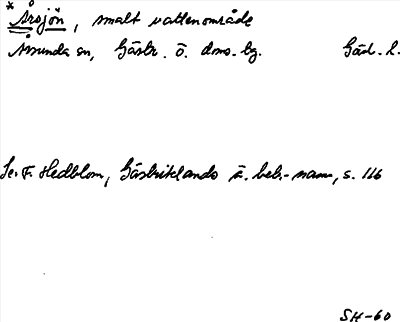 *Årsjön, smalt vattenområde
Årsunda sn, Gästr. ö. dms. hg. Gäd. l.
Se F. Hedblom, Gästriklands ä. beb.-namn, s. 116
SH-60